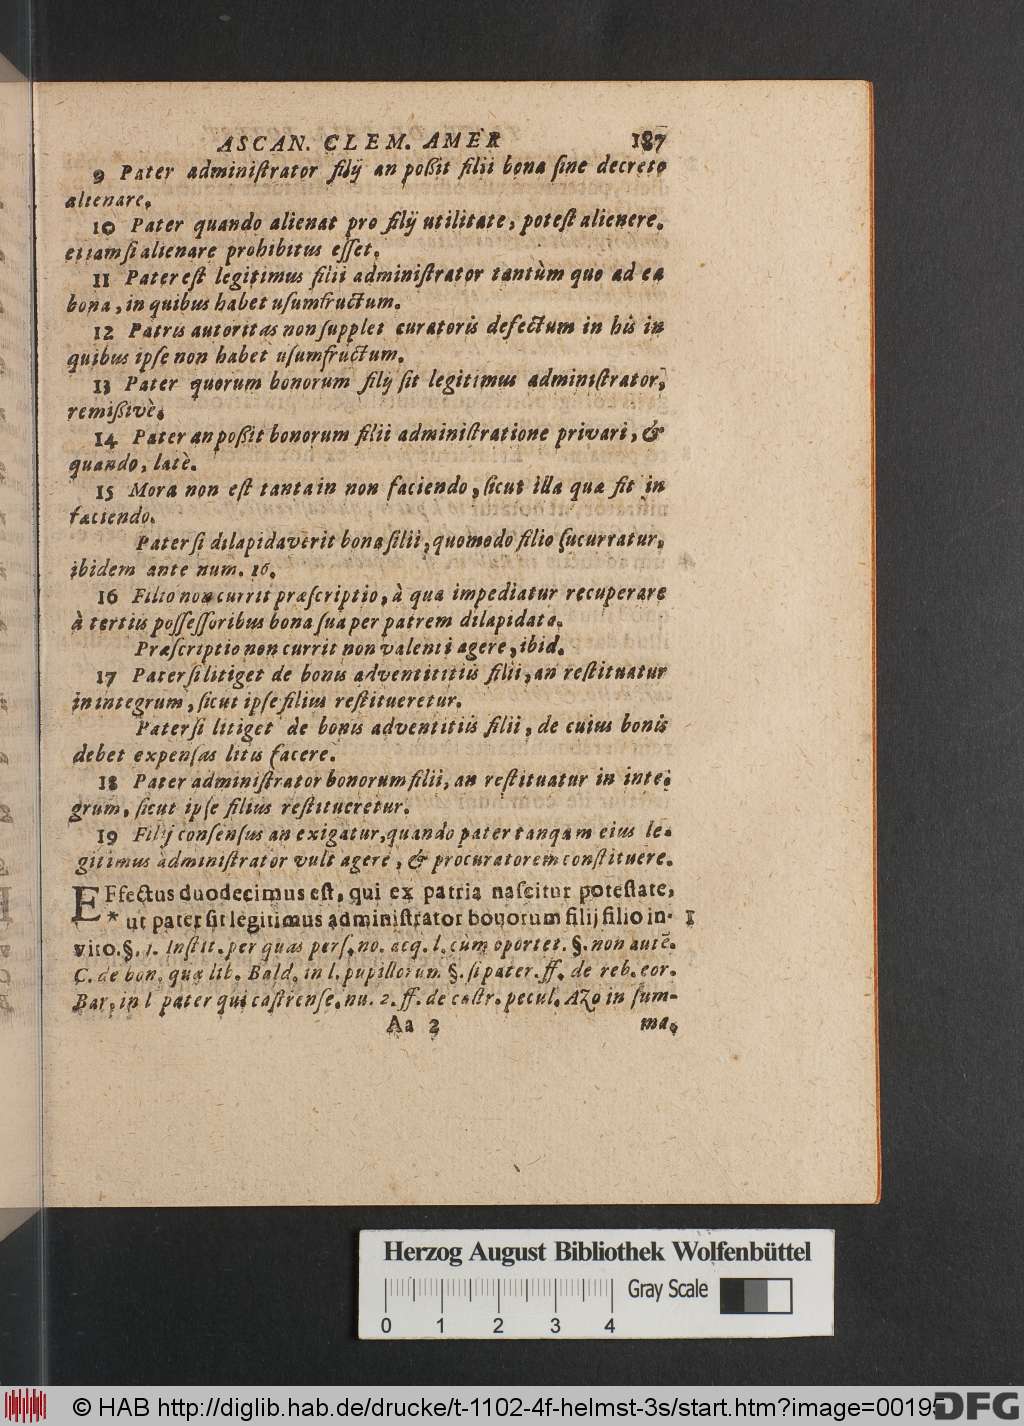 ASCAN. CLEM. AMER 187
9 Pater administrator filij an poßit filii bona sine decreto
alienare.
10 Pater quando alienat pro filij utilitate, potest alienere.
etiamsi alienare prohibitus esset.
11 Pater est legitimus filii administrator tantùm quo ad ea
bona, in quibus habet usumfructum.
12 Patris autoritas non supplet curatoris defectum in his in
quibus ipse non habet usumfructum.
13 Pater quorum bonorum filij sit legitimus administrator,
remißivè.
14 Pater an poßit bonorum filii administratione privari, &
quando, latè.
15 Mora non est tanta in non faciendo, sicut illa quæ fit in
faciendo.
Pater si dilapidaverit bona filii, quomodo filio sucurratur,
ibidem ante num. 16.
16 Filio non currit præscriptio, à qua impediatur recuperare
à tertiis possessoribus bona sua per patrem dilapidata.
Præscriptio non currit non valenti agere, ibid.
17 Pater si litiget de bonis adventititiis filii, an restituatur
in integrum, sicut ipse filius restitueretur.
Pater si litiget de bonis adventitiis filii, de cuius bonis
debet expensas litis facere.
18 Pater administrator bonorum filii, an restituatur in inte-
grum, sicut ipse filius restitueretur.
19 Filij consensus an exigatur, quando pater tanqam eius le-
gitimus administrator vult agere, & procuratorem constituere.
EFfectus duodecimus est, qui ex patria nascitur potestate,
* ut pater sit legitimus administrator bonorum filij filio in- 1
vito. §. 1. Instit. per quas pers. no. acq. l. cùm oportet. §. non autē.
C. de bon. quæ lib. Bald. in l. pupillorum §. si pater. ff. de reb. eor.
Bar. in l pater qui castrense. nu. 2. ff. de castr. pecul. Azo in sum-
Aa 2 ma.
Herzog August Bibliothek Wolfenbüttel
Gray Scale
0 1 2 3 4
© HAB http://diglib.hab.de/drucke/t-1102-4f-helmst-3s/start.htm?image=00195
DFG